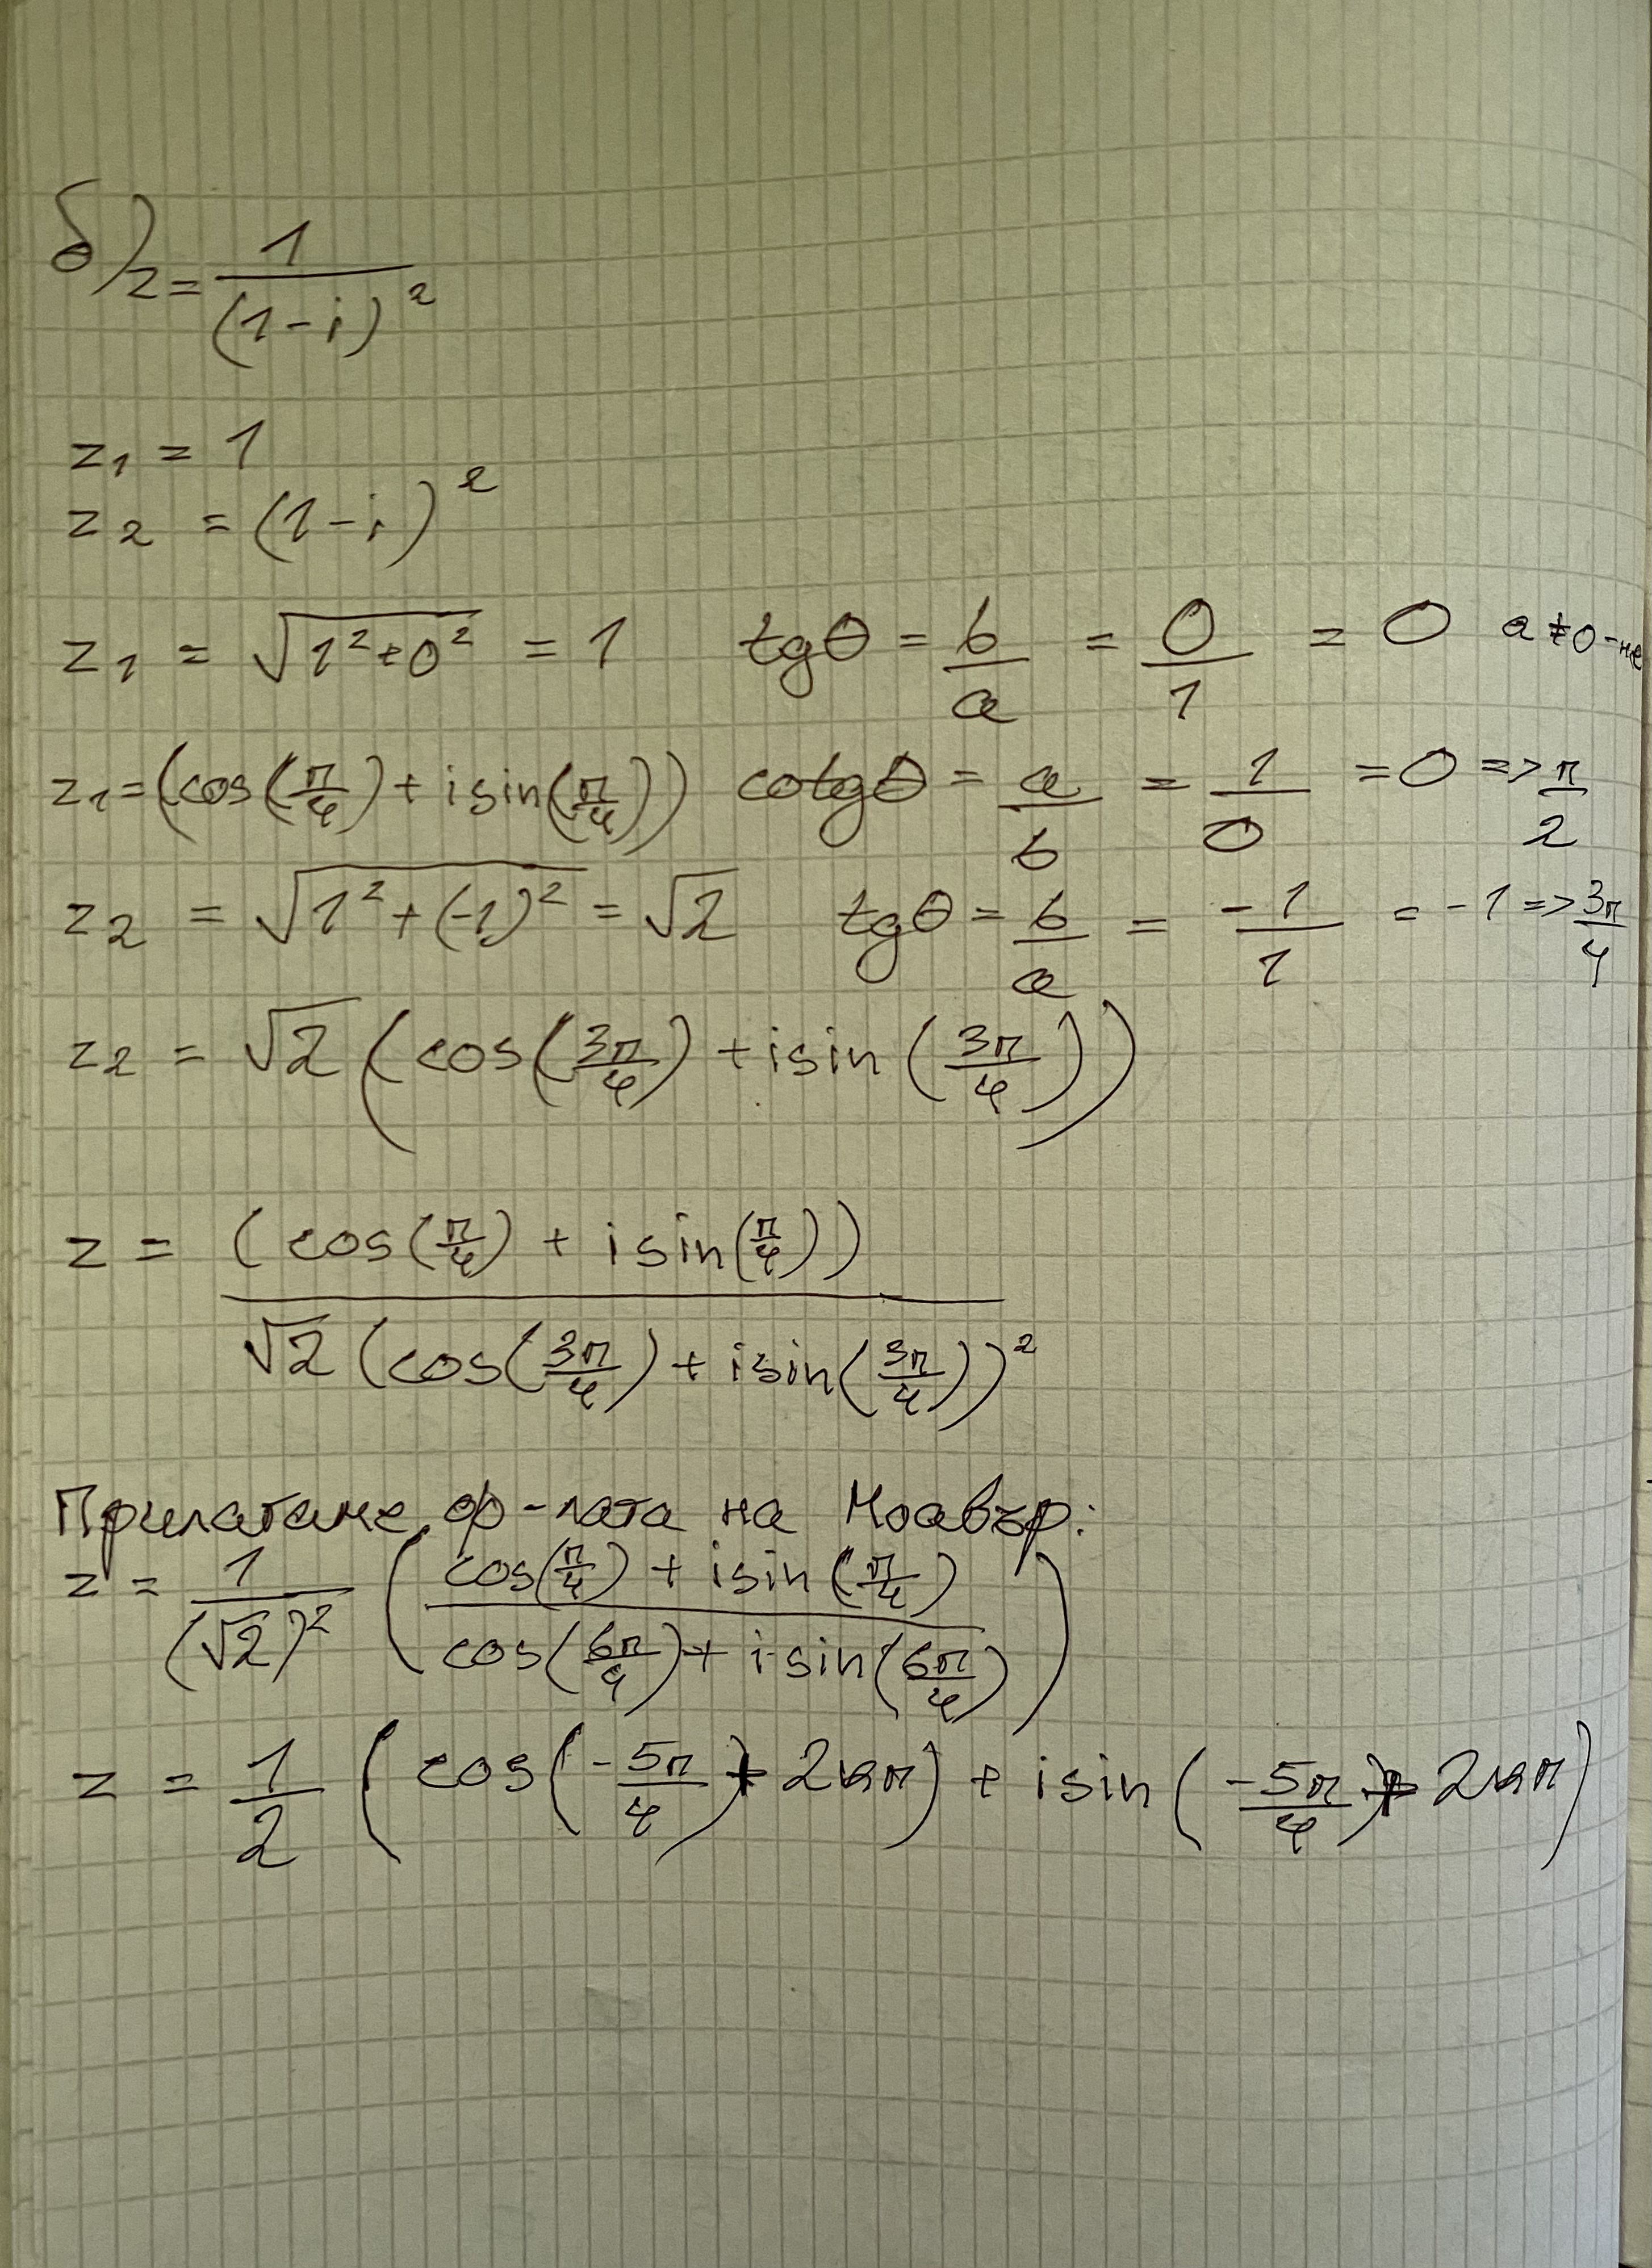 б) z = 1/(1-i)²
z₁ = 1
z₂ = (1-i)²
z₁ = √(1²+0²) = 1 tgθ = b/a = 0/1 = 0 a≠0 - не
z₁ = (cos(π/4) + isin(π/4)) cotgθ = a/b = 1/0 = 0 => π/2
z₂ = √(1²+(-1)²) = √2 tgθ = b/a = -1/1 = -1 => 3π/4
z₂ = √2 (cos(3π/4) + isin(3π/4))
z = (cos(π/4) + isin(π/4)) / √2 (cos(3π/4) + isin(3π/4))²
Прилагаме ф-лата на Моавър:
z = 1/(√2)² ( cos(π/4) + isin(π/4) / cos(6π/4) + isin(6π/4) )
z = 1/2 ( cos(-5π/4) + 2kπ) + isin(-5π/4) + 2kπ)